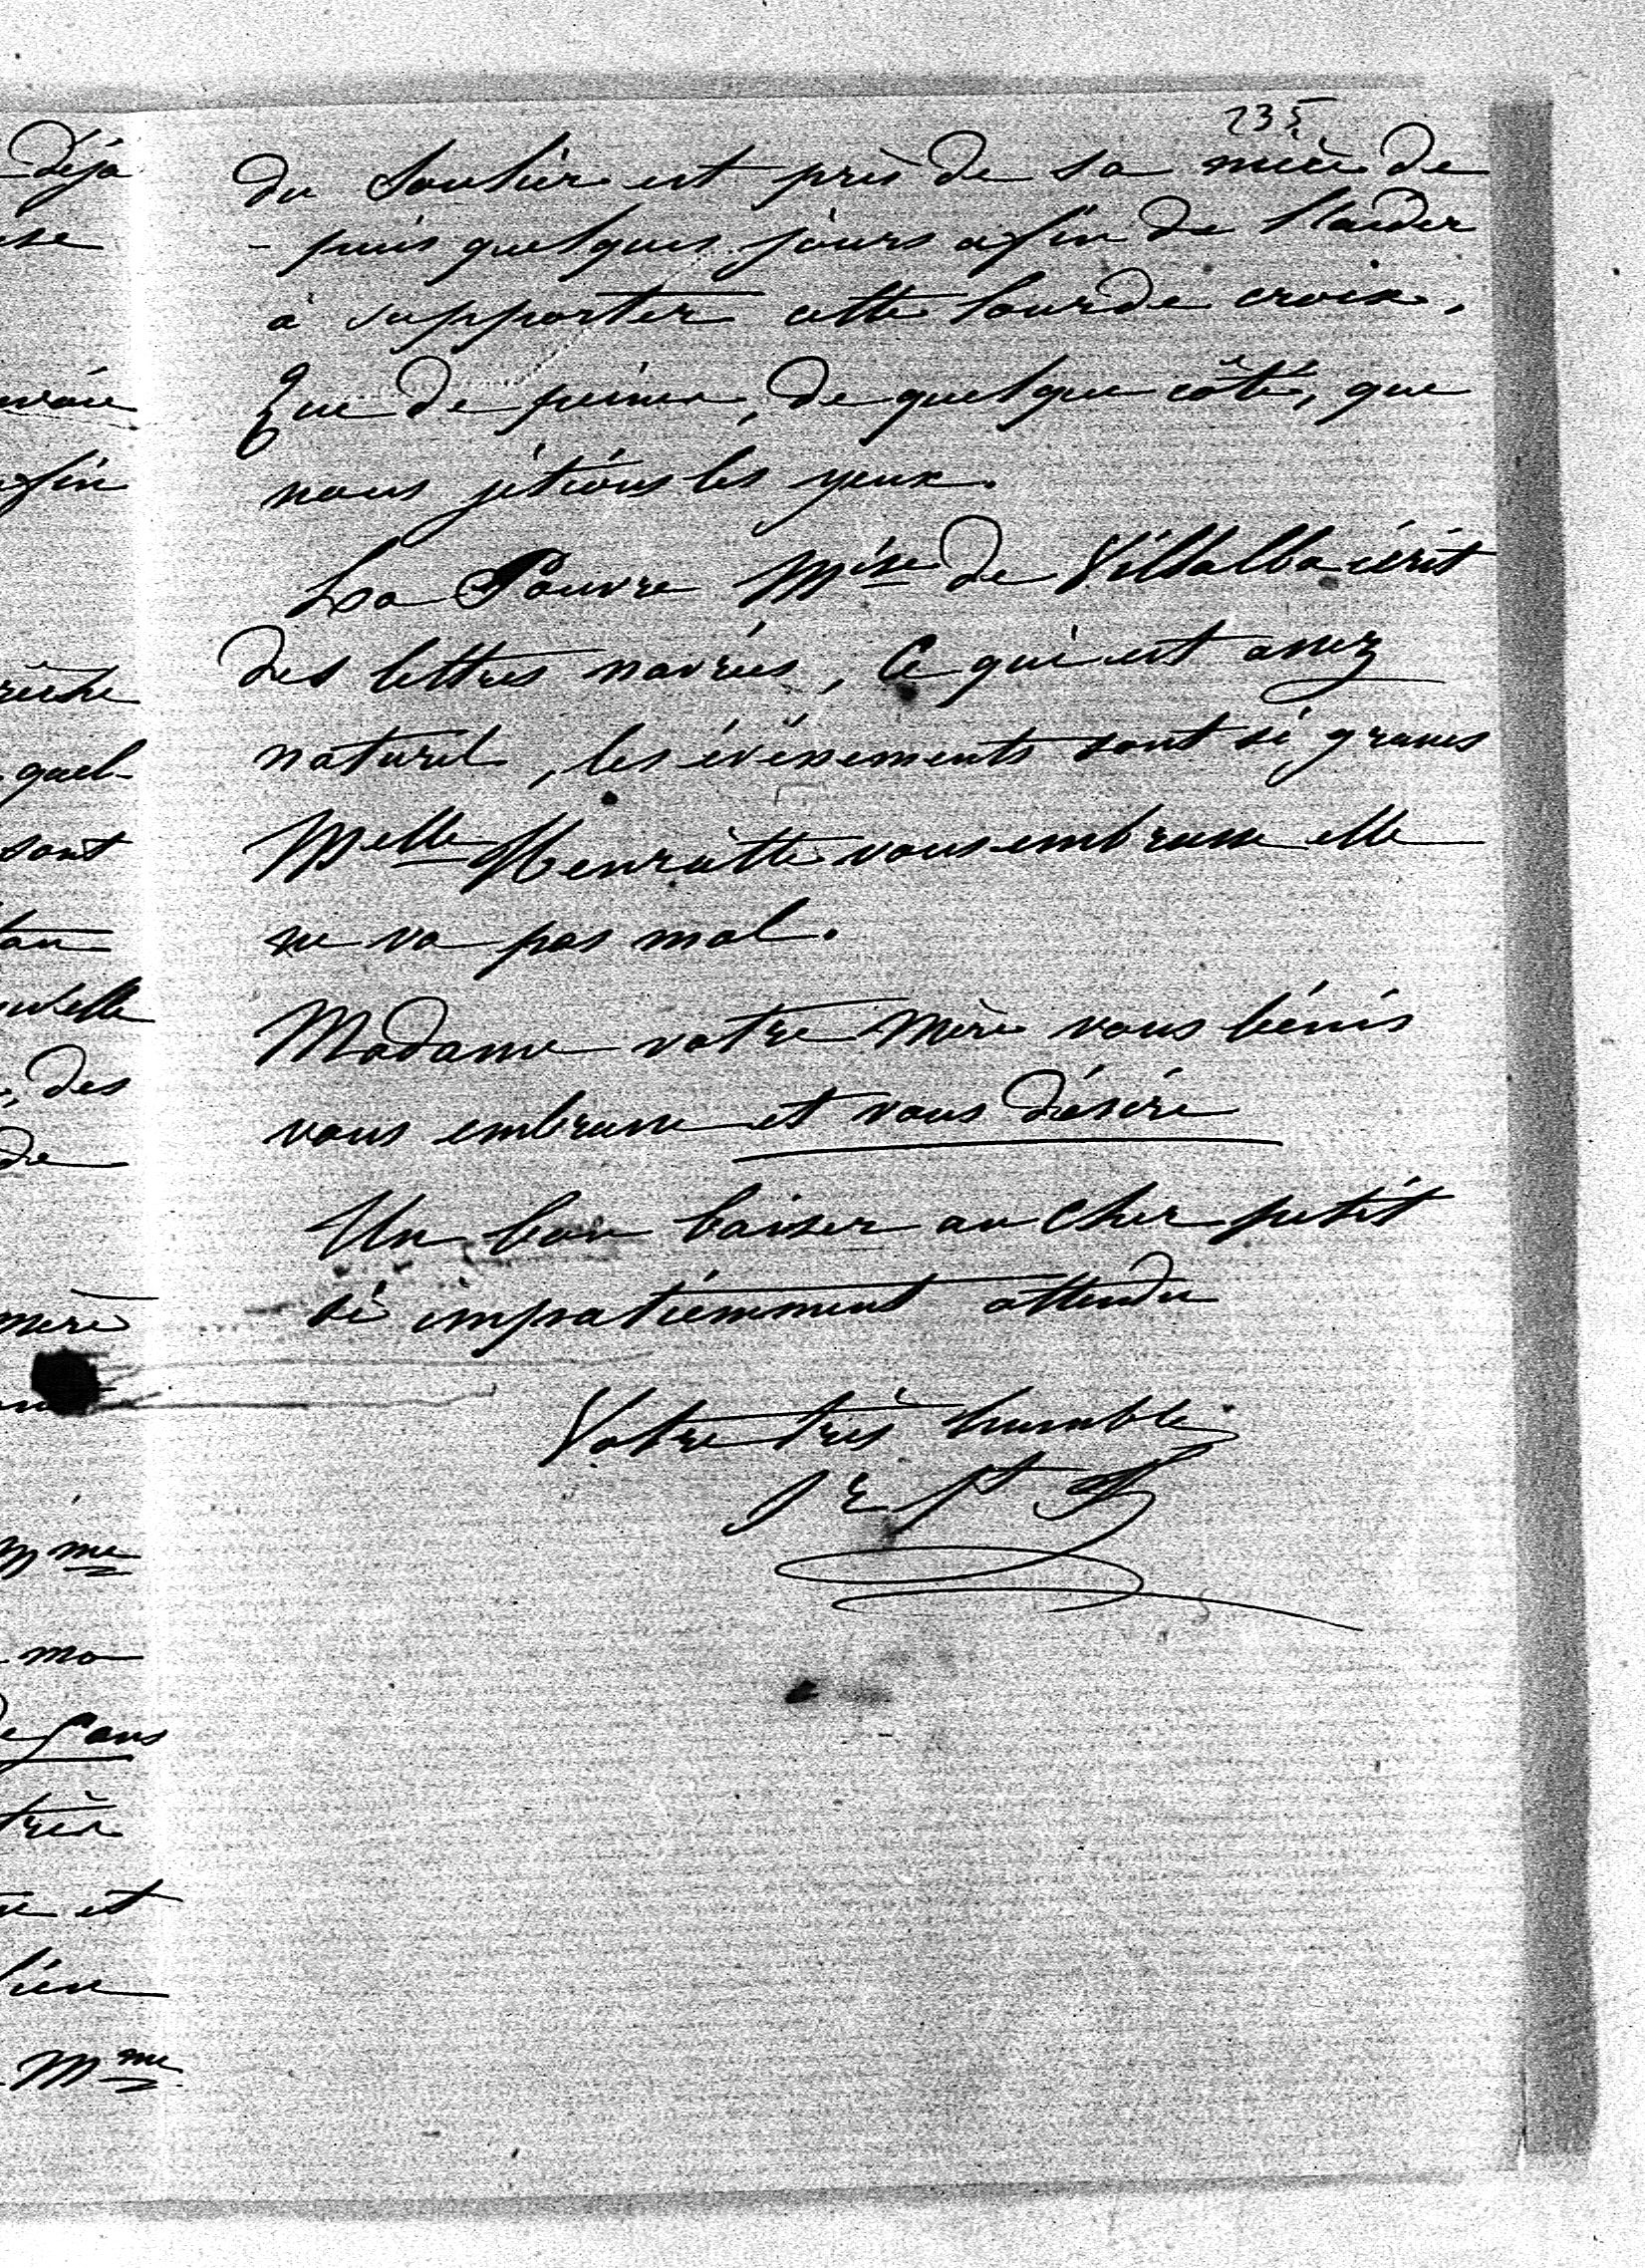 235
du Soulier est près de sa mère de
- puis quelques jours afin de l'aider
à supporter cette lourde croix.
Que de peines, de quelque côté, que
nous jetions les yeux.
La Pauvre Mise de Villalba écrit
des lettres navrées, Ce qui est assez
naturel, les évènements sont si graves
Melle Henriette vous embrasse elle
ne va pas mal.
Madame votre Mère vous bénis
vous embrasse et vous désire
Un bon baiser au Cher petit
si impatiemment attendu
Votre très humble
déjà
afin
quel-
sont
des
de
mère
Mme
ma
très
et
Mme